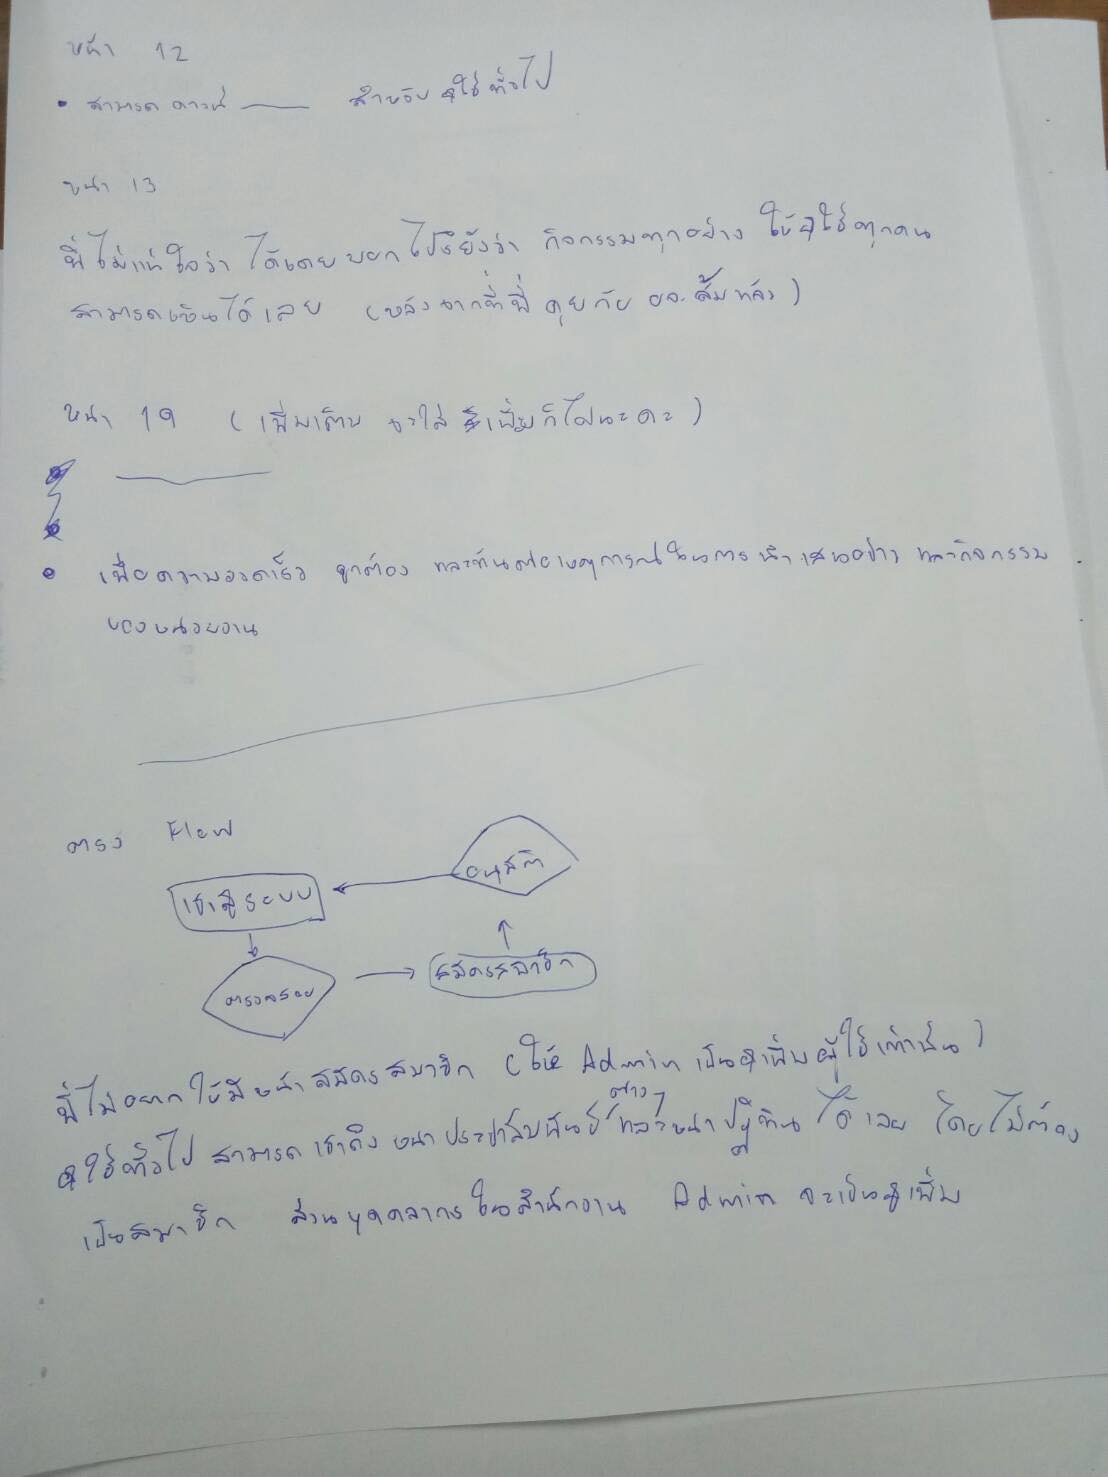 หน้า 12
• สามารถ ดาวน์ —— สำหรับ ผู้ใช้ทั่วไป
หน้า 13
พี่ไม่แน่ใจว่า ได้เคยบอกไปรึยังว่า กิจกรรมทุกอย่าง ให้ผู้ใช้ทุกคน
สามารถเห็นได้เลย (หลังจากที่พี่คุยกับ
หน้า 19 (เพิ่มเติม จะใส่ เพิ่มก็ได้นะคะ)
• เพื่อความรวดเร็ว ถูกต้อง และทันต่อเหตุการณ์ในการนำเสนอข่าว และกิจกรรม
ของหน่วยงาน
ตรง Flow
อนุมัติ
เข้าสู่ระบบ
สมัครสมาชิก
ตรวจสอบ
พี่ไม่อยากให้มีหน้าสมัครสมาชิก (ให้ Admin เป็นผู้เพิ่มผู้ใช้เท่านั้น)
ผู้ใช้ทั่วไป สามารถเข้าถึง หน้าประชาสัมพันธ์ต่างๆ และหน้าปฏิทิน ได้เลย โดยไม่ต้อง
เป็นสมาชิก ส่วนบุคคลากรในสำนักงาน Admin จะเป็นผู้เพิ่ม